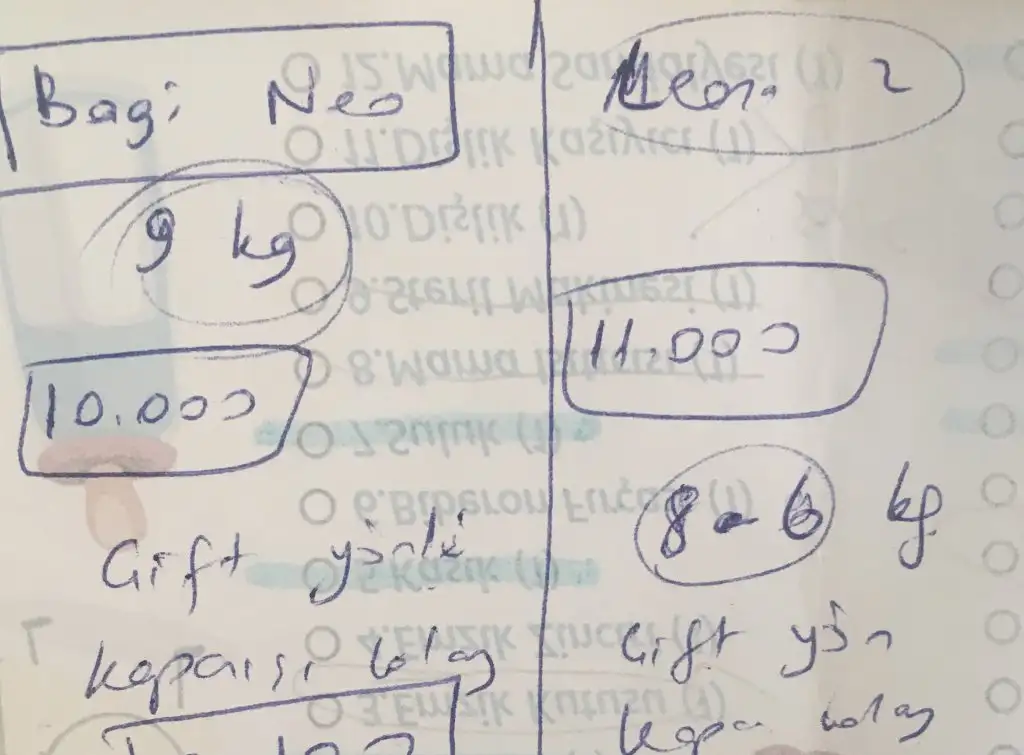 Bagi Neo
9 kg
10.000
Çift yönlü
Kapanışı kolay
2
11.000
8-6 kg
Çift yön
kolay
12.Mama Sandalyesi (1)
11.Dişlik Kaşıyıcı (1)
10.Dişlik (1)
9.Steril Makinesi (1)
8.Mama Isıtıcısı (1)
7.Suluk (1)
6.Biberon Fırçası (1)
5.Kaşık (1)
4.Emzik Zinciri (1)
3.Emzik Kutusu (1)